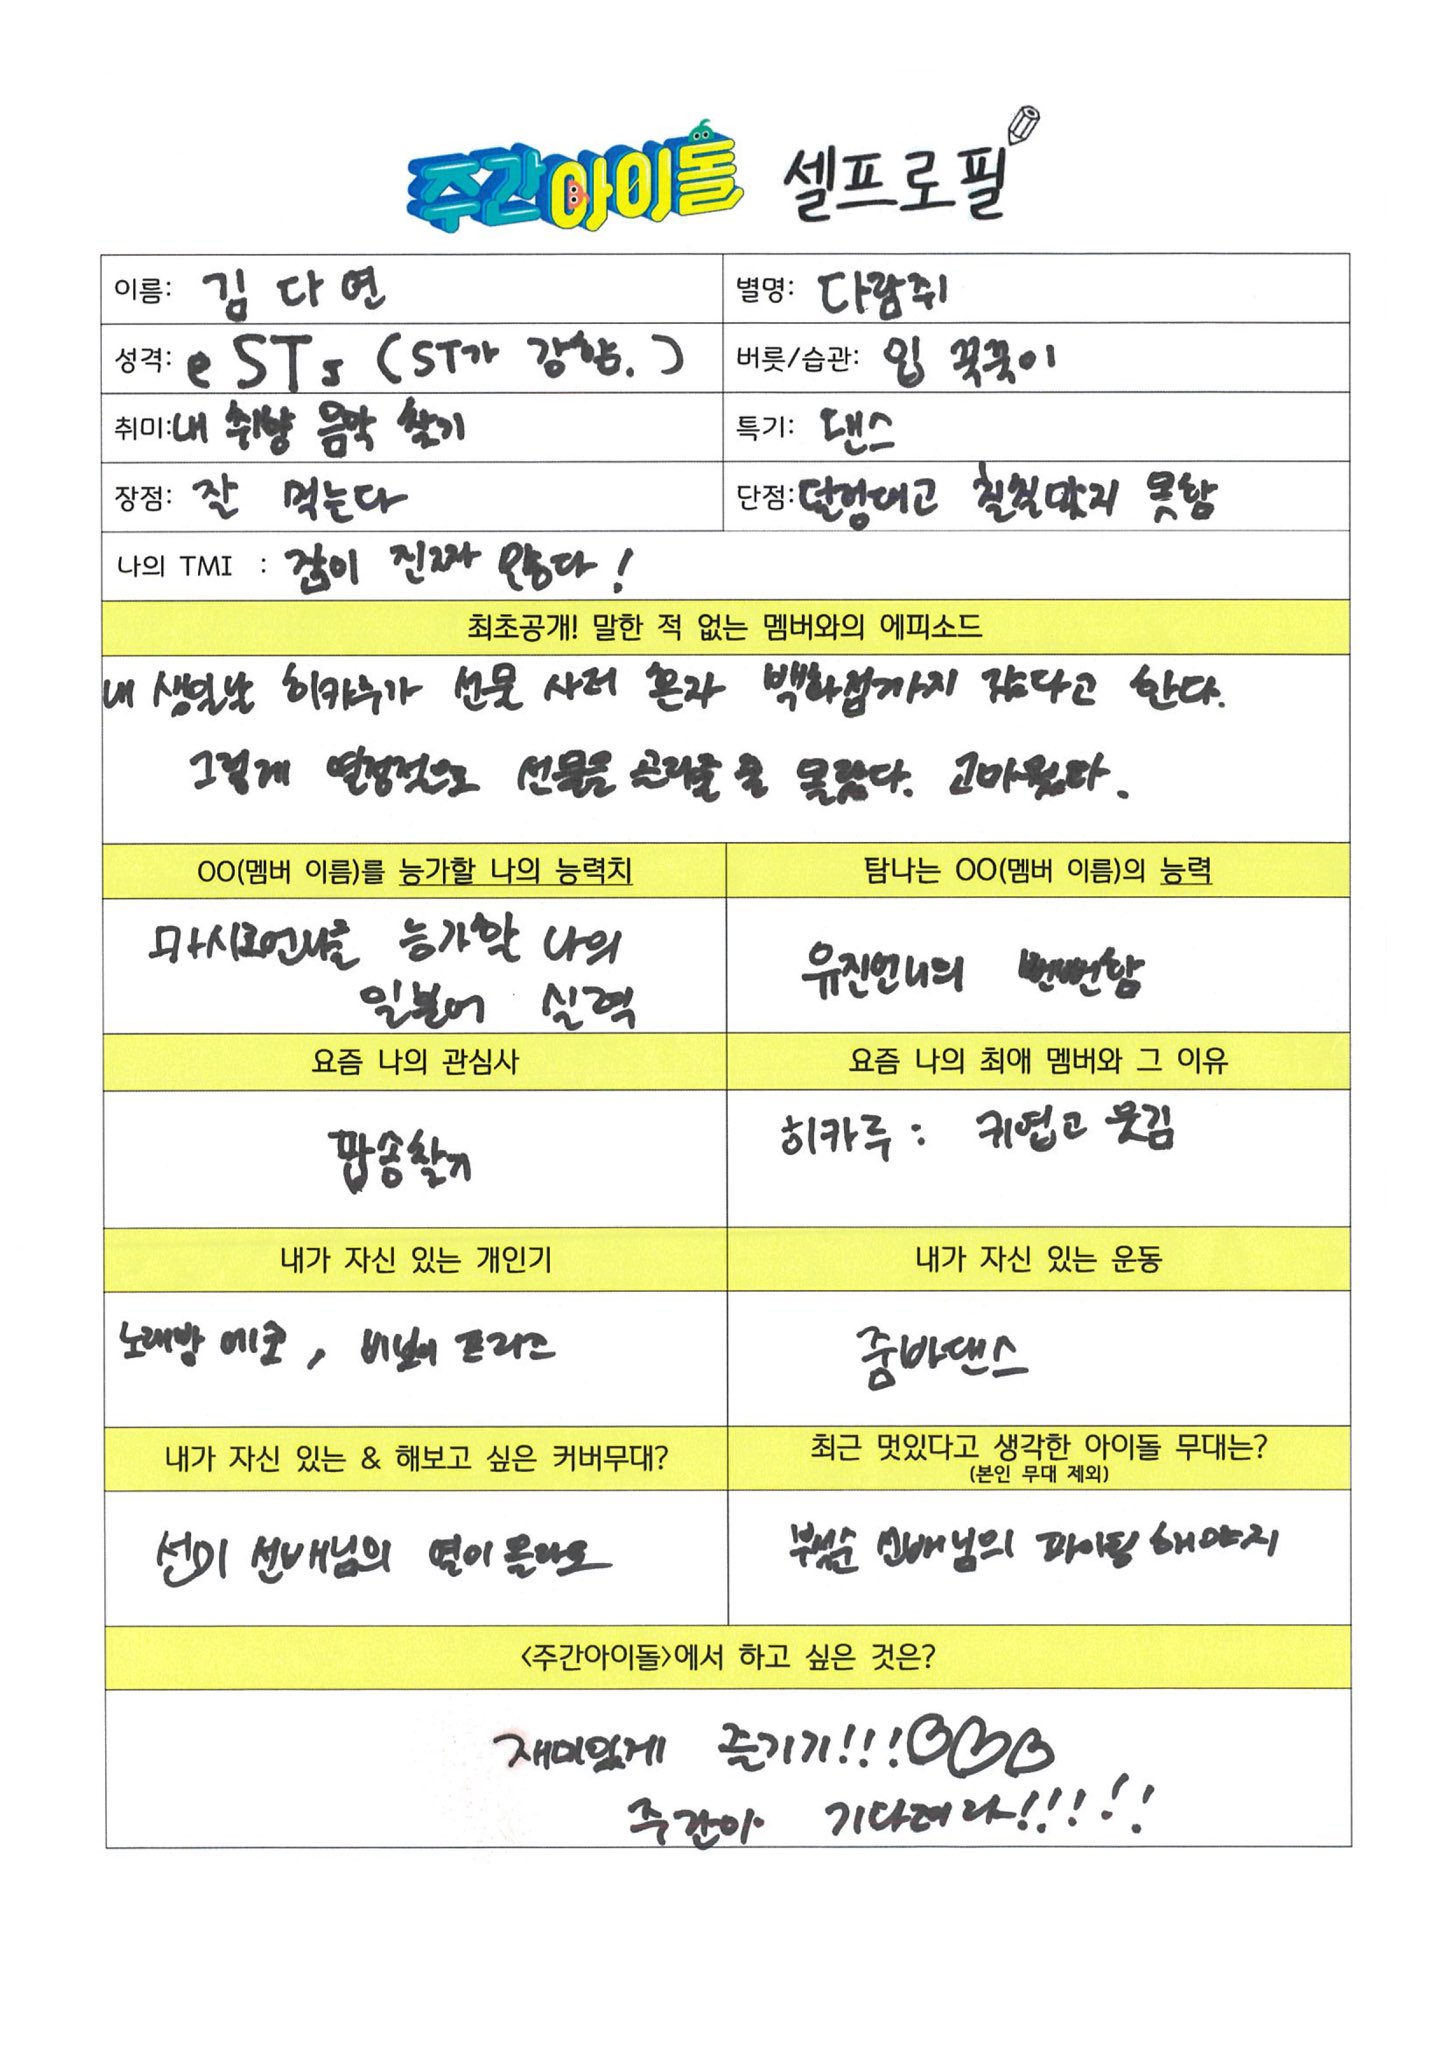 주간아이돌 셀프로필
이름: 김다연 별명: 다람쥐
성격: eSTj (ST가 강함.) 버릇/습관: 입 꾹꾹이
취미: 내 취향 음악 찾기 특기: 댄스
장점: 잘 먹는다 단점: 덜렁대고 칠칠맞지 못함
나의 TMI : 잠이 진짜 많다!
최초공개! 말한 적 없는 멤버와의 에피소드
내 생일날 히카루가 선물 사러 혼자 백화점까지 갔다고 한다.
그렇게 열정적으로 선물을 골라줄 줄 몰랐다. 고마웠다.
OO(멤버 이름)를 능가할 나의 능력치 탐나는 OO(멤버 이름)의 능력
마시로언니를 능가할 나의
일본어 실력
유진언니의 뻔뻔함
요즘 나의 관심사 요즘 나의 최애 멤버와 그 이유
팝송찾기
히카루 : 귀엽고 웃김
내가 자신 있는 개인기 내가 자신 있는 운동
노래방 에코, 비보이 프리즈
줌바댄스
내가 자신 있는 & 해보고 싶은 커버무대? 최근 멋있다고 생각한 아이돌 무대는?
(본인 무대 제외)
선미 선배님의 열이올라요 부석순 선배님의 파이팅 해야지
<주간아이돌>에서 하고 싶은 것은?
재미있게 즐기기!!!♡♡♡
주간아 기다려라!!!!!